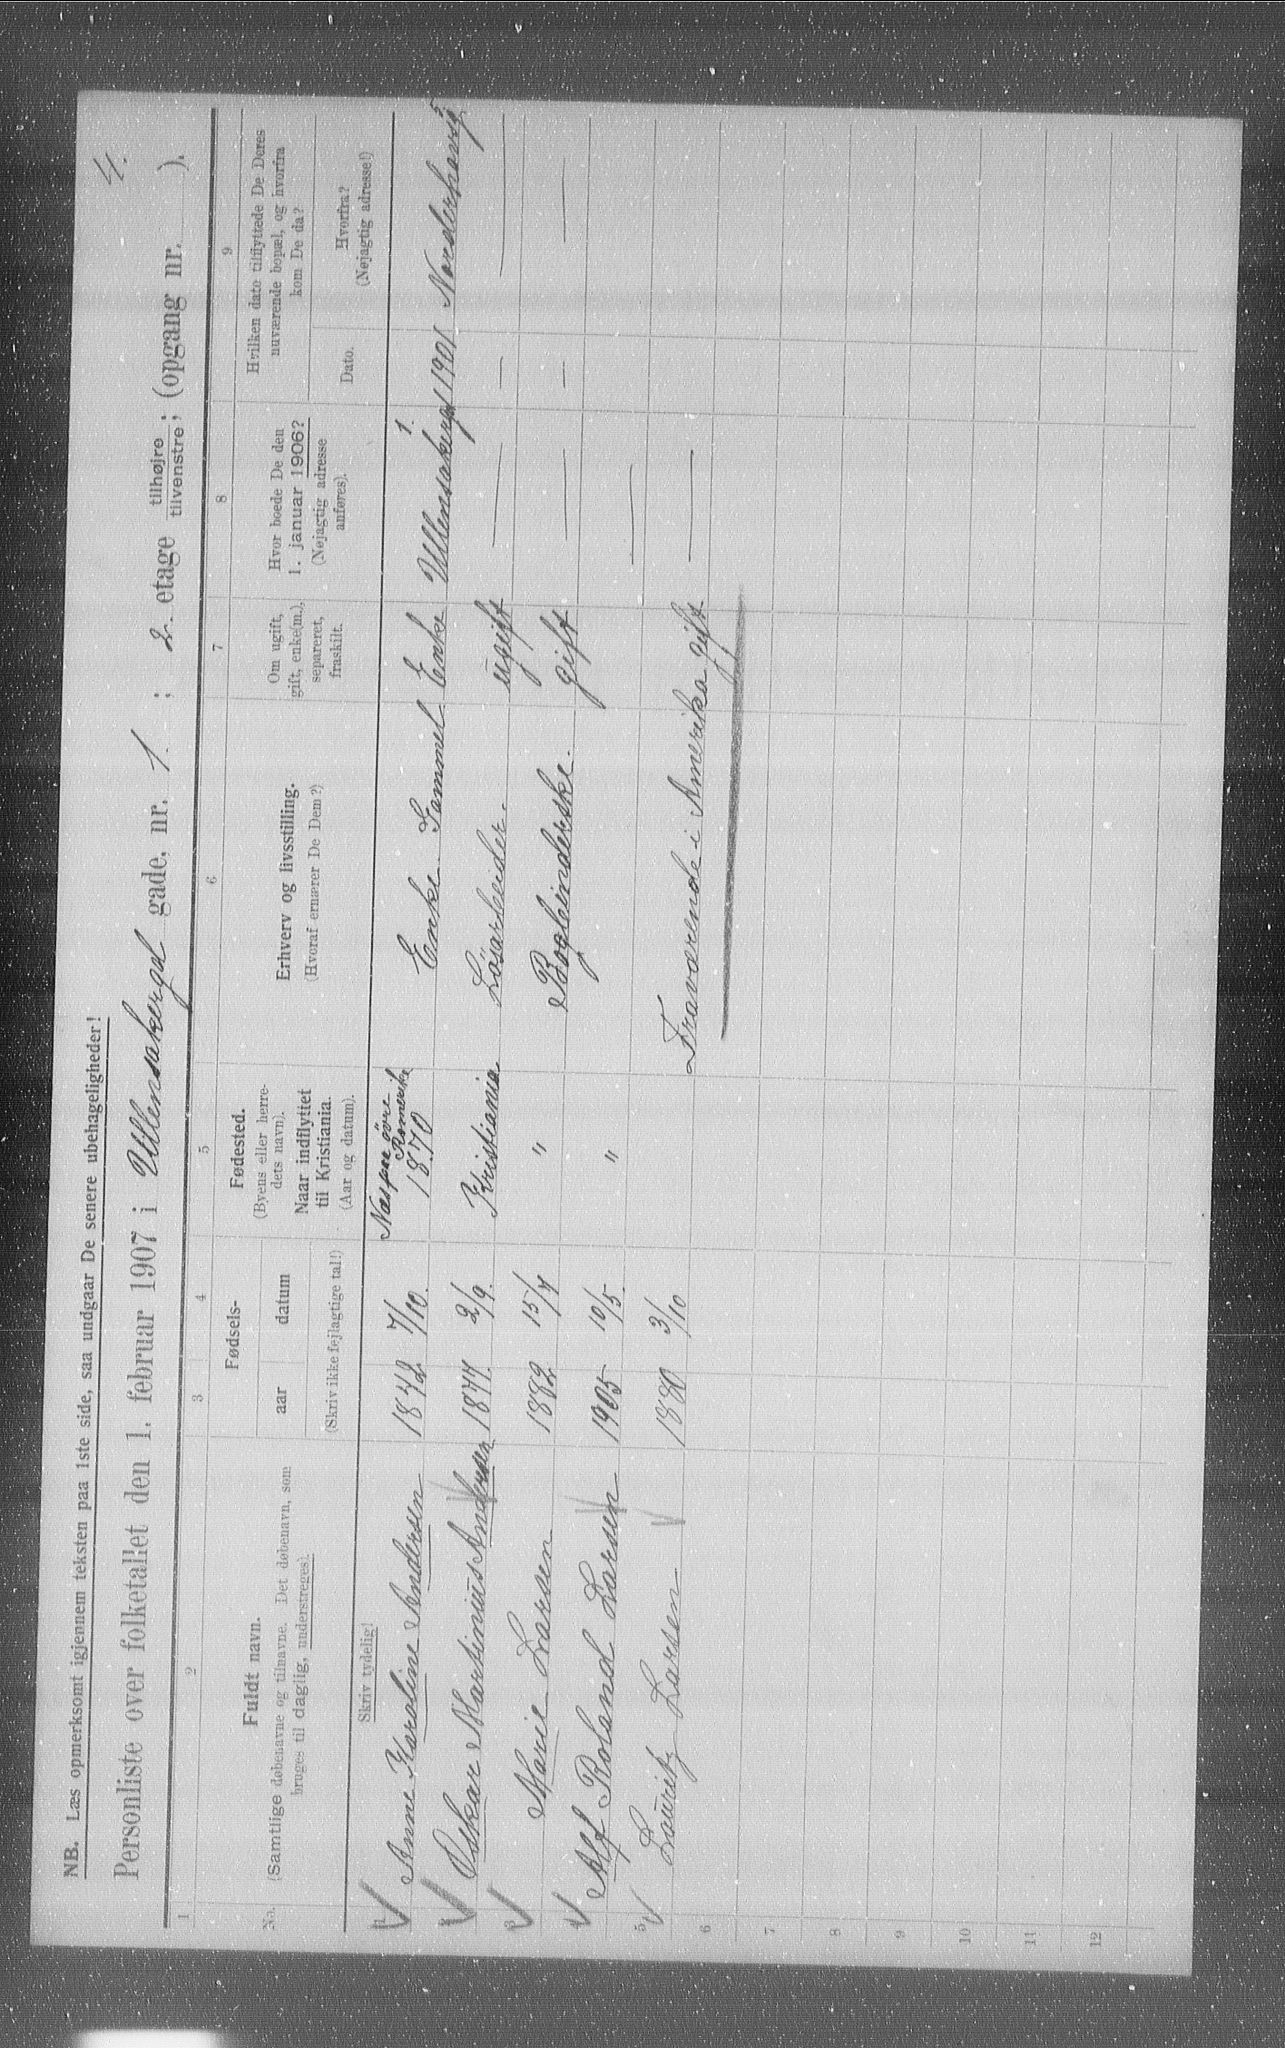 4.
NB. Læs opmerksomt igjennem teksten paa 1ste side, saa undgaar De senere ubehageligheder!
Personliste over folketallet den 1. februar 1907 i Ullensakergd gade, nr. 1. ; 2. etage tilhøjre tilvenstre; (opgang nr. ).
1 2 3 4 5 6 7 8 9
No.
Fuldt navn.
(Samtlige døbenavne og tilnavne. Det døbenavn, som
bruges til daglig, understreges).
Skriv tydelig!
Fødsels-
aar datum
(Skriv ikke fejlagtige tal!)
Fødested.
(Byens eller herre-
dets navn).
Naar indflyttet
til Kristiania.
(Aar og datum).
Erhverv og livsstilling.
(Hvoraf ernærer De Dem?)
Om ugift,
gift, enke(m.),
separeret,
fraskilt.
Hvor boede De den
1. januar 1906?
(Nøjagtig adresse
anføres).
Hvilken dato tilflyttede De Deres
nuværende bopæl, og hvorfra
kom De da?
Dato.
Hvorfra?
(Nøjagtig adresse!)
1 Anne Karoline Andersen 1842 7/10. Næs øvre Romerike 1870 Enke. Gammel Enke Ullensakergd 1. 1901 Norderhovsg
Oskar Martinius Andersen 1877. 2/9. Kristiania Løsarbeider. ugift — — —
Marie Larsen 1882 15/7 " Bogbinderske. gift — — —
Alf Roland Larsen 1905 10/5. " —
5 Lauritz Larsen 1880 3/10 Fraværende i Amerika gift —
6
7
8
9
10
11
12